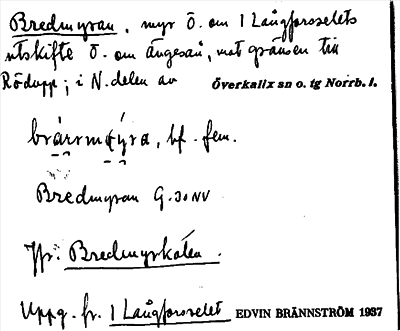 Bredmyran, myr Ö. om 1 Långforsselets
utskifte Ö. om Ängesån, mot gränsen till
Rödupp; i N. delen av Överkalix sn o. tg Norrb. l.
bf. fem.
Bredmyran G. 30 NV
Jfr: Bredmyrkölen.
Uppg. fr. 1 Långforsselet EDVIN BRÄNNSTRÖM 1937